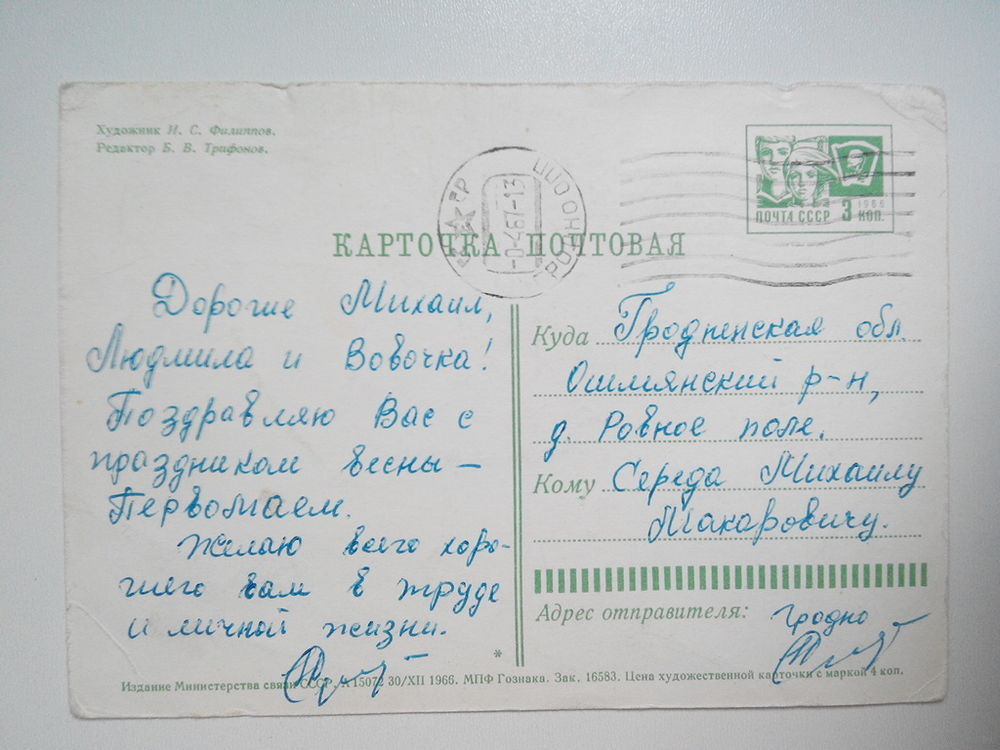 Художник И. С. Филиппов.
Редактор Б. В. Трифонов.
ПОЧТА СССР 3 КОП.
1966
КАРТОЧКА ПОЧТОВАЯ
Дорогие Михаил,
Людмила и Вовочка!
Поздравляю Вас с
праздником весны —
Первомаем.
Желаю всего хоро-
шего вам в труде
и личной жизни.
Куда Гродненская обл.
Ошмянский р-н,
д. Ровное поле.
Кому Середа Михаилу
Макаровичу.
Адрес отправителя: Гродно
*
Издание Министерства связи СССР. А 15072 30/XII 1966. МПФ Гознака. Зак. 16583. Цена художественной карточки с маркой 4 коп.